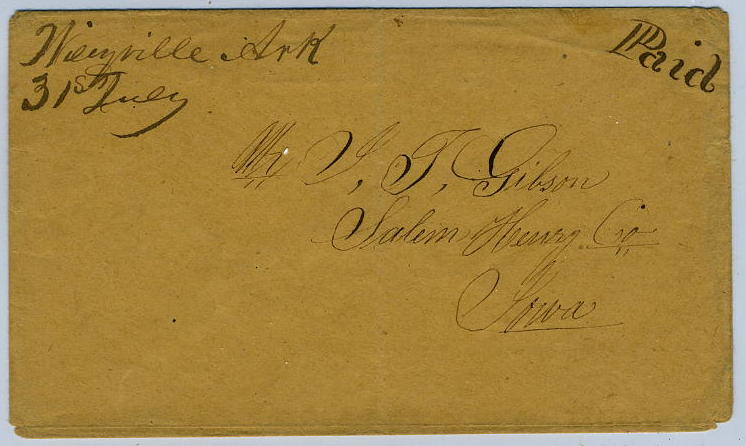 Wileyville Ark
31st July
Paid
Mr J, T, Gibson
Salem Henry Co
Iowa